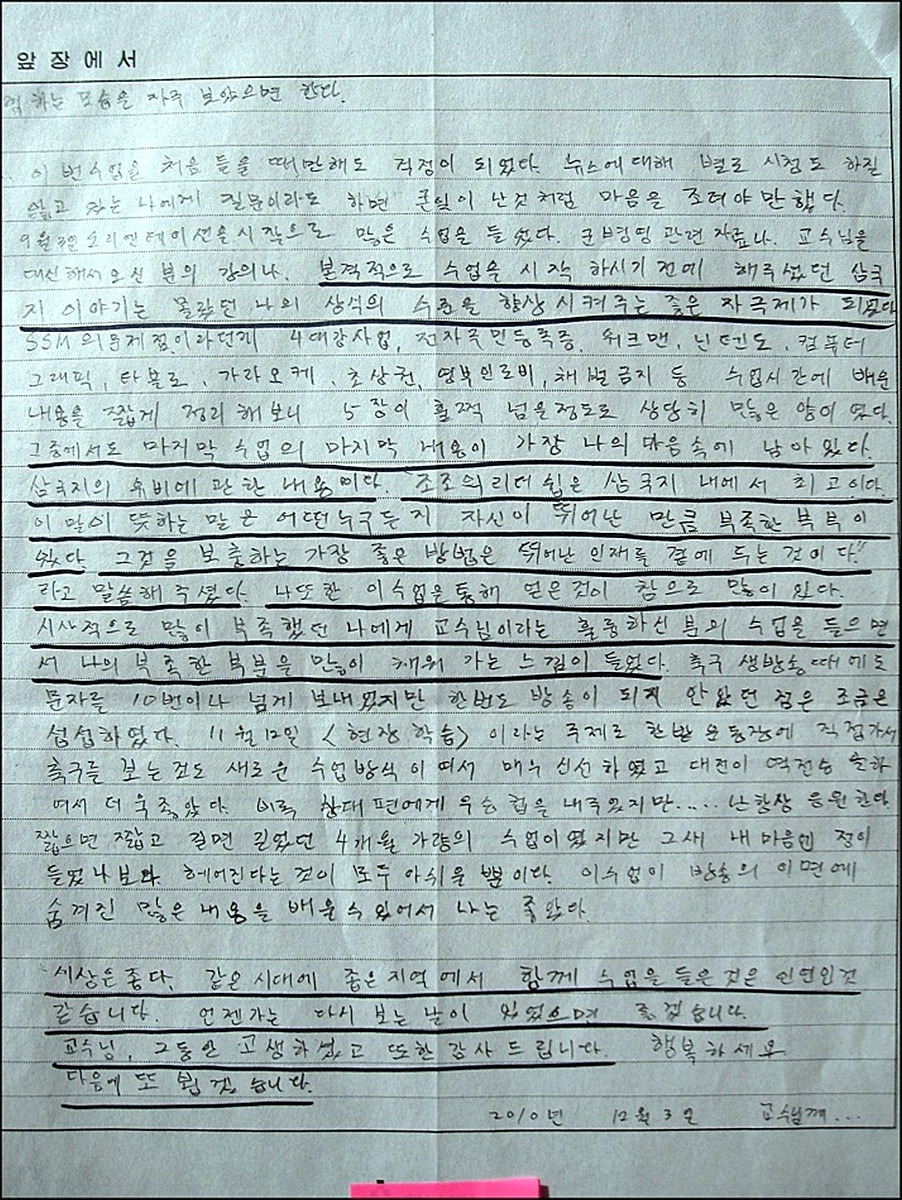 앞장에서
하는 모습을 자주 보았으면 한다.
이번수업을 처음 들을 때만해도 걱정이 되었다. 뉴스에대해 별로 시청도 하질
않고 있는 나에게 질문이라도 하면 큰일이 난것처럼 마음을 조려야만했다.
9월3일 오리엔테이션을시작으로 많은 수업을 들었다. 군병영 관련자료나. 교수님을
대신해서오신 분의 강의나. 본격적으로 수업을 시작 하시기전에 해주셨던 삼국
지 이야기는 몰랐던 나의 상식의 수준을 향상시켜주는 좋은 자극제가 되었다
SSM의문제점이라던지 4대강사업, 전자국민등록증, 워크맨, 닌텐도, 컴퓨터
그래픽, 타블로, 가라오케, 초상권, 영부인로비, 체벌금지 등 수업시간에 배운
내용을 짧게 정리해보니 5장이 훌쩍 넘을정도로 상당히 많은 양이였다.
그중에서도 마지막 수업의 마지막 내용이 가장 나의 마음속에 남아있다.
삼국지의 유비에 관한 내용이다. 조조의리더쉽은 삼국지 내에서 최고이다.
이 말이 뜻하는 말은 어떤누구든지 자신이 뛰어난 만큼 부족한 부분이
있다. 그것을 보충하는 가장 좋은 방법은 "뛰어난 인재를 곁에 두는 것이다"
라고 말씀해주셨다. 나또한 이수업을통해 얻은것이 참으로 많이 있다.
시사적으로 많이 부족했던 나에게 교수님이라는 훌륭하신분의 수업을 들으면
서 나의 부족한 부분을 많이 채워 가는 느낌이 들었다. 축구 생방송때에도
문자를 10번이나 넘게 보내었지만 한번도 방송이 되지 않았던 점은 조금은
섭섭하였다. 11월12일 <현장 학습> 이라는 주제로 한밭운동장에 직접가서
축구를 보는것도 새로운 수업방식이여서 매우 신선하였고 대전이 역전승을하
여서 더욱좋았다. 비록 상대편에게 우승컵을 내주었지만..... 난항상 응원한다.
짧으면 짧고 길면 길었던 4개월 가량의 수업이였지만 그새 내마음엔 정이
들었나보다. 헤어진다는 것이 모두 아쉬울 뿐이다. 이수업이 방송의 이면에
숨겨진 많은 내용을 배울수있어서 나는 좋았다.
세상은좋다. 같은시대에 좋은지역에서 함께 수업을 들은것은 인연인것
같습니다. 언젠가는 다시 보는 날이 있었으면 좋겠습니다.
교수님, 그동안 고생하셨고 또한 감사드립니다. 행복하세요
다음에 또 뵙겠습니다.
2010년 12월3일 교수님께...